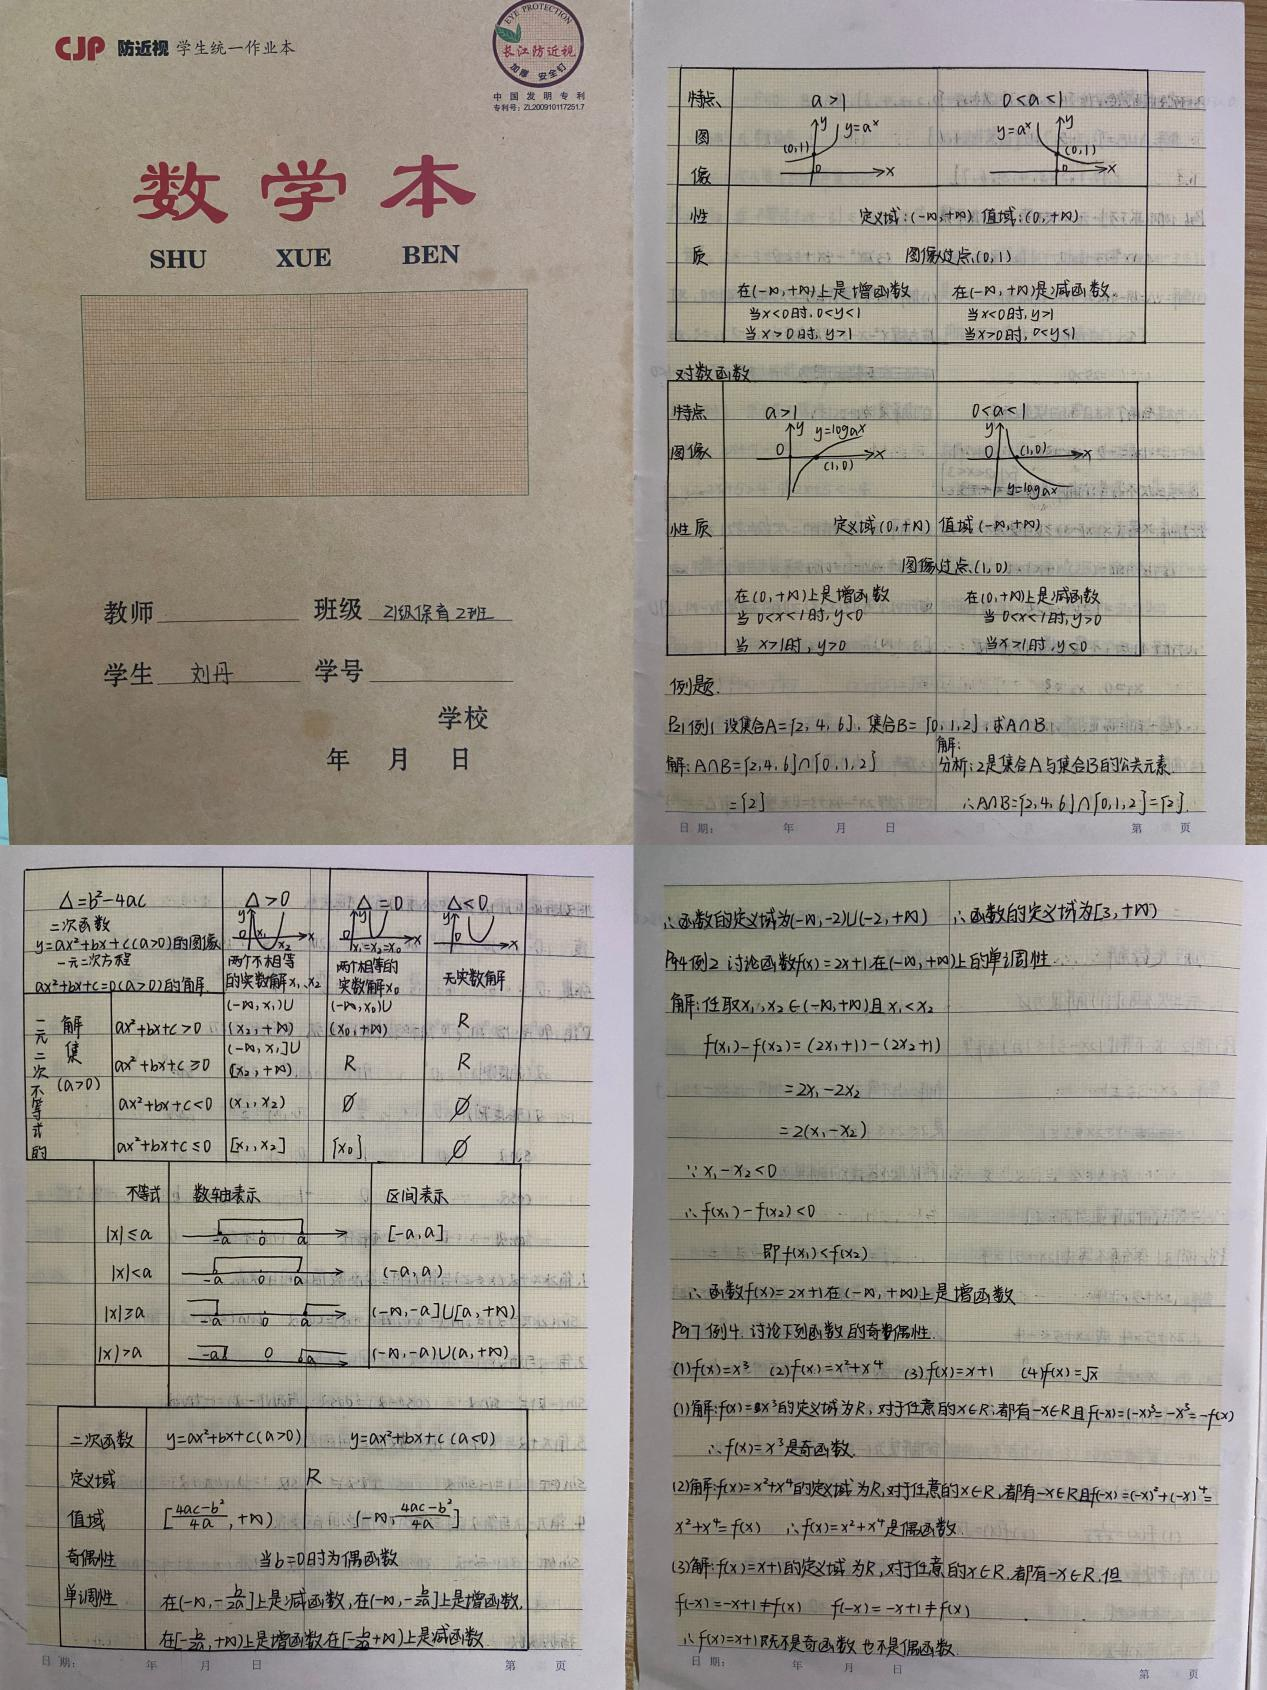 CJP 防近视 学生统一作业本
EYE PROTECTION
长江防近视
加厚 安全钉
中国发明专利
专利号: ZL200910117251.7
数学本
SHU XUE BEN
教师 班级 21级保育2班
学生 刘丹 学号
学校
年 月 日
特点 a>1 0<a<1
图像 y y=aˣ (0,1) 0 x y=aˣ y (0,1) 0 x
性质 定义域:(-∞,+∞) 值域:(0,+∞)
图像过点(0,1)
在(-∞,+∞)上是增函数 在(-∞,+∞)是减函数.
当x<0时,0<y<1 当x<0时,y>1
当x>0时,y>1 当x>0时,0<y<1
对数函数
特点 a>1 0<a<1
图像 0 y y=logaˣ x (1,0) 0 y (1,0) x y=logaˣ
性质 定义域(0,+∞) 值域(-∞,+∞)
图像过点(1,0)
在(0,+∞)上是增函数 在(0,+∞)上是减函数
当0<x<1时,y<0 当0<x<1时,y>0
当x>1时,y>0 当x>1时,y<0
例题.
P21例1 设集合A={2,4,6},集合B={0,1,2},求A∩B
解:
解:A∩B={2,4,6}∩{0,1,2} 分析:2是集合A与集合B的公共元素.
={2} ∴A∩B={2,4,6}∩{0,1,2}={2}.
日期: 年 月 日 第 页
△=b²-4ac △>0 △=0 △<0
二次函数
y=ax²+bx+c(a>0)的图像 y 0 x₁ x₂ x y 0 x₁=x₂=x₀ x y 0 x
一元二次方程 两个不相等 两个相等的
ax²+bx+c=0(a>0)的解 的实数解x₁,x₂ 实数解x₀ 无实数解
一元二次不等式的解集(a>0)
ax²+bx+c>0 (-∞,x₁)∪(x₂,+∞) (-∞,x₀)∪(x₀,+∞) R
ax²+bx+c≥0 (-∞,x₁]∪[x₂,+∞) R R
ax²+bx+c<0 (x₁,x₂) ∅ ∅
ax²+bx+c≤0 [x₁,x₂] {x₀} ∅
不等式 数轴表示 区间表示
|x|≤a -a 0 a [-a,a]
|x|<a -a 0 a (-a,a)
|x|≥a -a 0 a (-∞,-a]∪[a,+∞)
|x|>a -a 0 a (-∞,-a)∪(a,+∞)
二次函数 y=ax²+bx+c(a>0) y=ax²+bx+c(a<0)
定义域 R
值域 [4ac-b²/4a,+∞) (-∞,4ac-b²/4a]
奇偶性 当b=0时为偶函数
单调性 在(-∞,-b/2a]上是减函数,在(-∞,-b/2a]上是增函数,
在[-b/2a,+∞)上是增函数 在[-b/2a+∞)上是减函数
日期: 年 月 日 第 页
∴函数的定义域为(-∞,-2)∪(-2,+∞) ∴函数的定义域为[3,+∞)
P94例2 讨论函数f(x)=2x+1在(-∞,+∞)上的单调性.
解:任取x₁,x₂∈(-∞,+∞)且x₁<x₂
f(x₁)-f(x₂)=(2x₁+1)-(2x₂+1)
=2x₁-2x₂
=2(x₁-x₂)
∵x₁-x₂<0
∴f(x₁)-f(x₂)<0
即f(x₁)<f(x₂)
∴函数f(x)=2x+1在(-∞,+∞)上是增函数
P97例4.讨论下列函数的奇偶性.
(1)f(x)=x³ (2)f(x)=x²+x⁴ (3)f(x)=x+1 (4)f(x)=√x
(1)解:f(x)=x³的定义域为R,对于任意的x∈R,都有-x∈R且f(-x)=(-x)³=-x³=-f(x)
∴f(x)=x³是奇函数.
(2)解:f(x)=x²+x⁴的定义域为R,对于任意的x∈R,都有-x∈R且f(-x)=(-x)²+(-x)⁴=
x²+x⁴=f(x) ∴f(x)=x²+x⁴是偶函数
(3)解:f(x)=x+1的定义域为R,对于任意的x∈R,都有-x∈R,但
f(-x)=-x+1≠f(x) f(-x)=-x+1≠f(x)
∴f(x)=x+1既不是奇函数也不是偶函数.
日期: 年 月 日 第 页